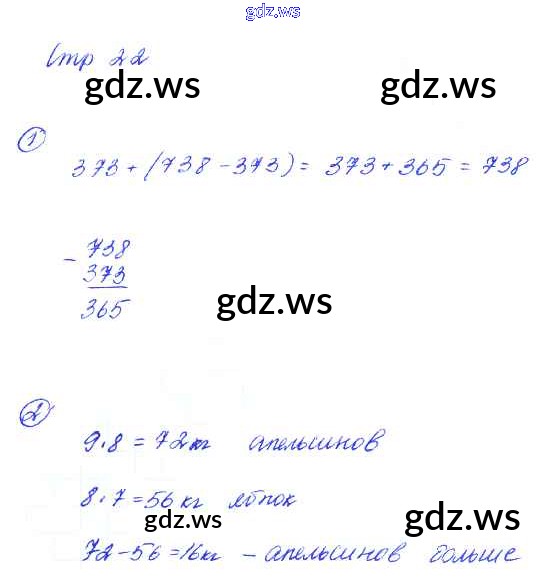 gdz.ws
Стр 22
gdz.ws gdz.ws
1
373 + (738 - 373) = 373 + 365 = 738
- 738
373
365
gdz.ws
2
9 · 8 = 72 кг апельсинов
8 · 7 = 56 кг яблок
gdz.ws gdz.ws
72 - 56 = 16 кг - апельсинов больше